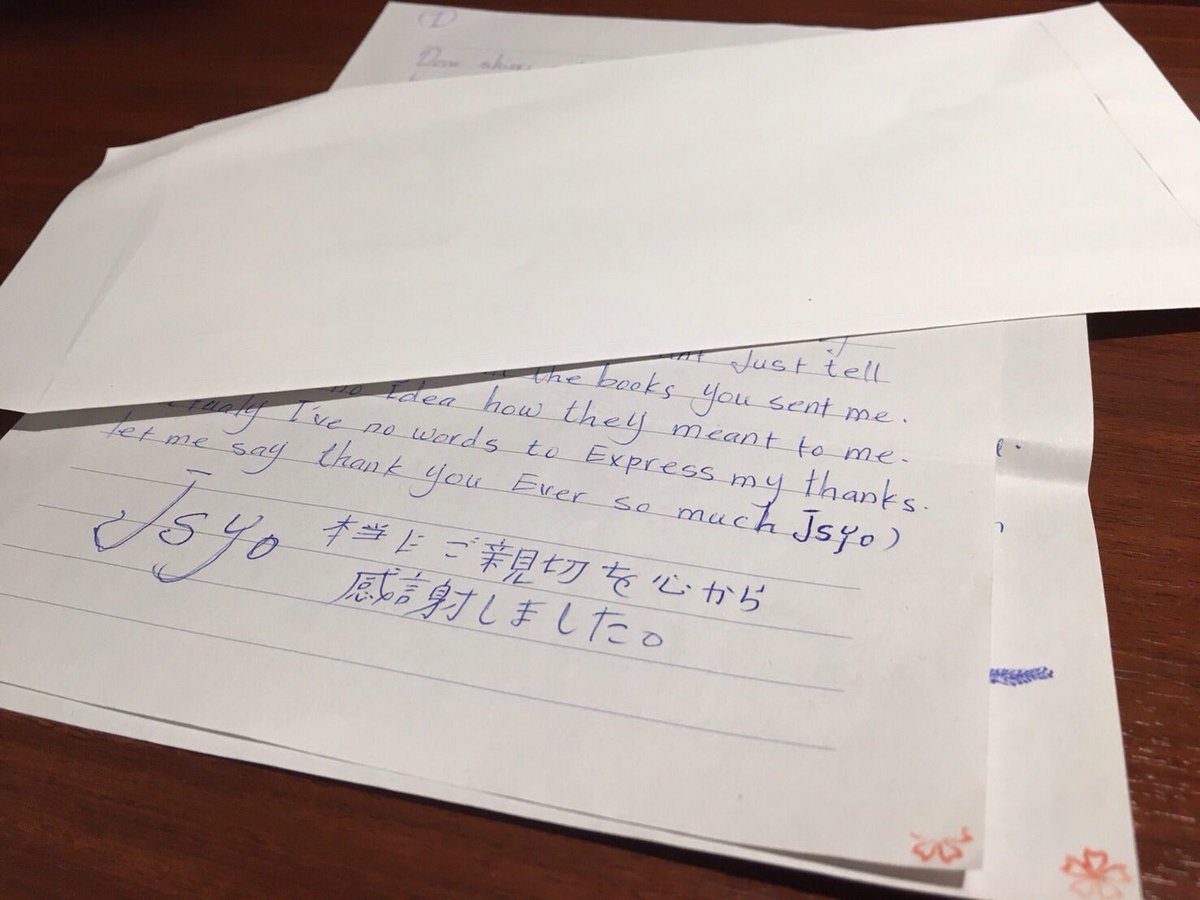 (1)
Dear
Just tell
the books you sent me.
no Idea how they meant to me.
I've no words to Express my thanks.
let me say thank you Ever so much Jsyo)
Jsyo 本当に ご親切を心から
感謝しました。